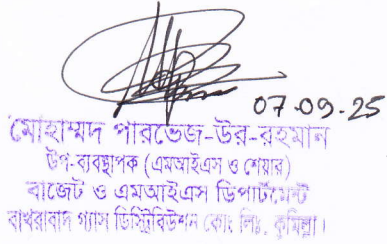 07-09-25
মোহাম্মদ পারভেজ-উর-রহমান
উপ-ব্যবস্থাপক (এমআইএস ও শেয়ার)
বাজেট ও এমআইএস ডিপার্টমেন্ট
বাখরাবাদ গ্যাস ডিস্ট্রিবিউশন কোং লিঃ, কুমিল্লা।